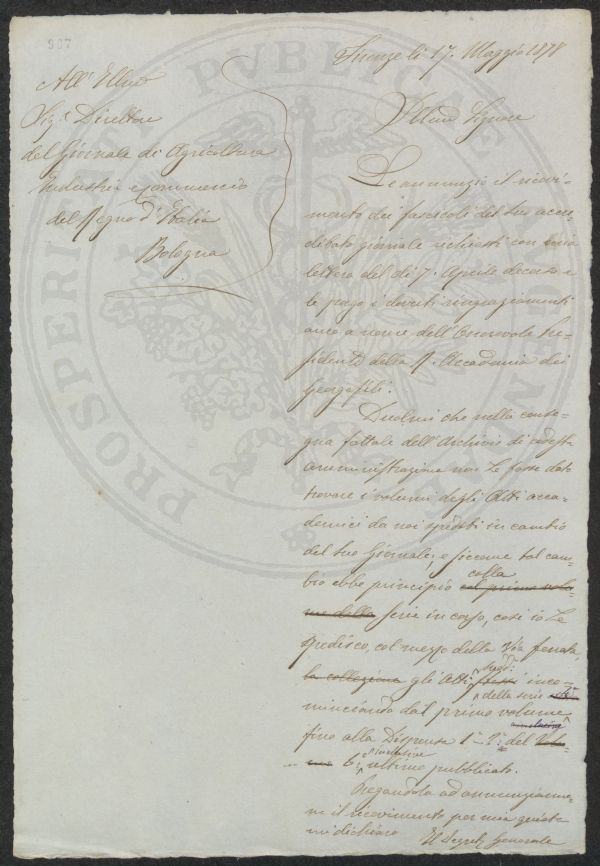 907
Firenze li 17. Maggio 1878
All' Illmo
Sig.r Direttore
del Giornale di Agricoltura
Industria e Commercio
del Regno d'Italia
Bologna
Illmo Signore
Le annunzio il ricevi-
mento dei fascicoli del suo accre-
ditato giornale richiesti con mia
lettera del di 7. Aprile decorso e
le pago i dovuti ringraziamenti
anco a nome dell' Onorevole Pre-
sidente della R. Accademia dei
Georgofili.
Duolmi che nella conse-
gna fattale dell' Archivio di codesta
amministrazione non Le fosse dato
trovare i volumi degli Atti acca-
demici da noi spediti in cambio
del suo Giornale; e siccome tal cam-
bio ebbe principio col primo volu- colla
me della serie in corso, così io Le
spedisco, col mezzo della Via ferrata,
la collezione gli Atti inco-
della serie
minciando dal primo volume
fino alla Dispensa 1ª-2ª del Volu-
me 6º inclusive ultimo pubblicato.
Pregandola ad annunziarme-
ne il ricevimento per mia quiete
mi dichiaro
Il Segret. Generale
PROSPERITATI PUBLICAE AUGENDAE